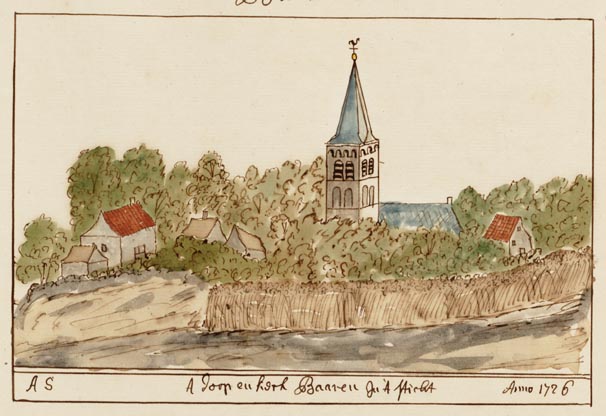 A S
Dorp en kerk Baaren In't sticht
Anno 1726